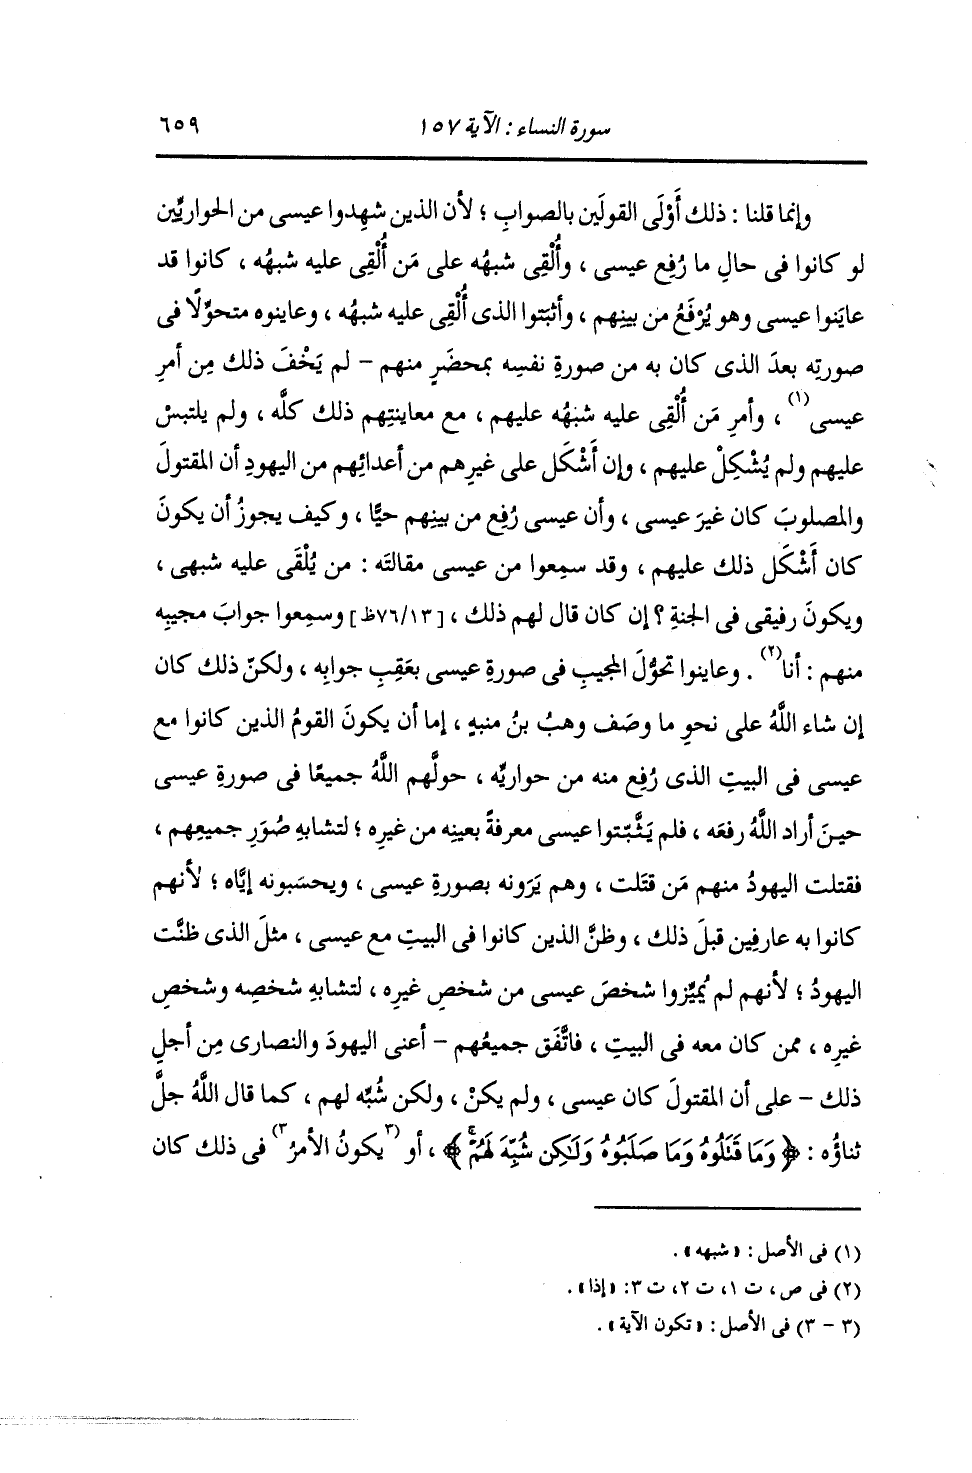 سورة النساء : الآية ١٥٧ ٦٥٩
وإنما قلنا : ذلك أَوْلَى القولَين بالصوابِ ؛ لأن الذين شهِدوا عيسى من الحواريِّين
لو كانوا فى حالِ ما رُفِع عيسى ، وأُلْقِى شبهُه على مَن أُلْقِى عليه شبهُه ، كانوا قد
عايَنوا عيسى وهو يُرْفَعُ من بينِهم ، وأثبَتوا الذى أُلْقِى عليه شبهُه ، وعاينوه متحوِّلًا فى
صورتِه بعدَ الذى كان به من صورةِ نفسِه بمحضَرٍ منهم – لم يَخْفَ ذلك مِن أمرِ
عيسى(١) ، وأمرِ مَن أُلْقِى عليه شبهُه عليهم ، مع معاينتِهم ذلك كلَّه ، ولم يلتبسْ
عليهم ولم يُشْكِلْ عليهم ، وإن أَشْكَل على غيرِهم من أعدائِهم من اليهودِ أن المقتولَ
والمصلوبَ كان غيرَ عيسى ، وأن عيسى رُفِع من بينِهم حيًّا ، وكيف يجوزُ أن يكونَ
كان أَشْكَل ذلك عليهم ، وقد سمِعوا من عيسى مقالتَه : من يُلْقَى عليه شبهى ،
ويكونَ رفيقى فى الجنةِ ؟ إن كان قال لهم ذلك ، [٧٦/١٣ظ] وسمِعوا جوابَ مجيبِه
منهم : أنا(٢) . وعاينوا تحوُّلَ المجيبِ فى صورةِ عيسى بعَقِبِ جوابِه ، ولكنّ ذلك كان
إن شاء اللَّهُ على نحوِ ما وصَف وهبُ بنُ منبهٍ ، إما أن يكونَ القومُ الذين كانوا مع
عيسى فى البيتِ الذى رُفِع منه من حواريِّه ، حولَّهم اللَّهُ جميعًا فى صورةِ عيسى
حينَ أراد اللَّهُ رفعَه ، فلم يَثَّبَّتوا عيسى معرفةً بعينِه من غيرِه ؛ لتشابهِ صُوَرِ جميعِهم ،
فقتلت اليهودُ منهم مَن قتَلت ، وهم يَرَونه بصورةِ عيسى ، ويحسَبونه إيَّاه ؛ لأنهم
كانوا به عارفِين قبلَ ذلك ، وظنَّ الذين كانوا فى البيتِ مع عيسى ، مثلَ الذى ظنَّت
اليهودُ ؛ لأنهم لم يُميِّزوا شخصَ عيسى من شخصِ غيرِه ، لتشابهِ شخصِه وشخصِ
غيرِه ، ممن كان معه فى البيتِ ، فاتَّفَق جميعُهم – أعنى اليهودَ والنصارى مِن أجلِ
ذلك – على أن المقتولَ كان عيسى ، ولم يكنْ ، ولكن شُبِّه لهم ، كما قال اللَّهُ جلَّ
ثناؤُه : ﴿ وَمَا قَتَلُوهُ وَمَا صَلَبُوهُ وَلَٰكِن شُبِّهَ لَهُمْۚ ﴾ ، أو (٣يكونُ الأمرُ٣) فى ذلك كان
(١) فى الأصل : « شبهه » .
(٢) فى ص، ت ١، ت ٢، ت ٣: «إذا» .
(٣ – ٣) فى الأصل : « تكون الآية » .